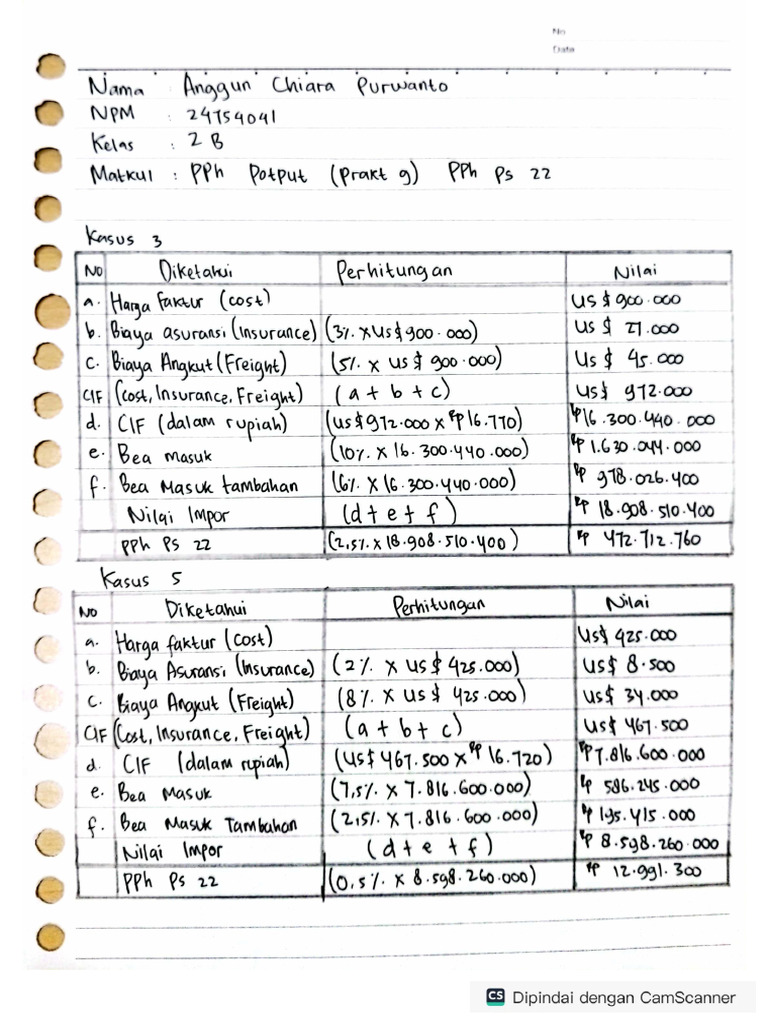 No
Date
Nama : Anggun Chiara Purwanto
NPM : 24754041
Kelas : 2 B
Matkul : PPh Potput (Prakt 9) PPh Ps 22
Kasus 3
No Diketahui Perhitungan Nilai
a. Harga Faktur (cost) US $ 900.000
b. Biaya asuransi (Insurance) (3% x US $ 900.000) US $ 27.000
c. Biaya Angkut (Freight) (5% x US $ 900.000) US $ 45.000
CIF (cost, Insurance, Freight) (a + b + c) US $ 972.000
d. CIF (dalam rupiah) (US $ 972.000 x Rp 16.770) Rp 16.300.440.000
e. Bea masuk (10% x 16.300.440.000) Rp 1.630.044.000
f. Bea Masuk tambahan (6% x 16.300.440.000) Rp 978.026.400
Nilai Impor (d + e + f) Rp 18.908.510.400
PPh Ps 22 (2,5% x 18.908.510.400) Rp 472.712.760
Kasus 5
No Diketahui Perhitungan Nilai
a. Harga faktur (Cost) US $ 425.000
b. Biaya Asuransi (Insurance) (2% x US $ 425.000) US $ 8.500
c. Biaya Angkut (Freight) (8% x US $ 425.000) US $ 34.000
CIF (Cost, Insurance, Freight) (a + b + c) US $ 467.500
d. CIF (dalam rupiah) (US $ 467.500 x Rp 16.720) Rp 7.816.600.000
e. Bea Masuk (7,5% x 7.816.600.000) Rp 586.245.000
f. Bea Masuk Tambahan (2,5% x 7.816.600.000) Rp 195.415.000
Nilai Impor (d + e + f) Rp 8.598.260.000
PPh Ps 22 (0,5% x 8.598.260.000) Rp 12.991.300
CS Dipindai dengan CamScanner